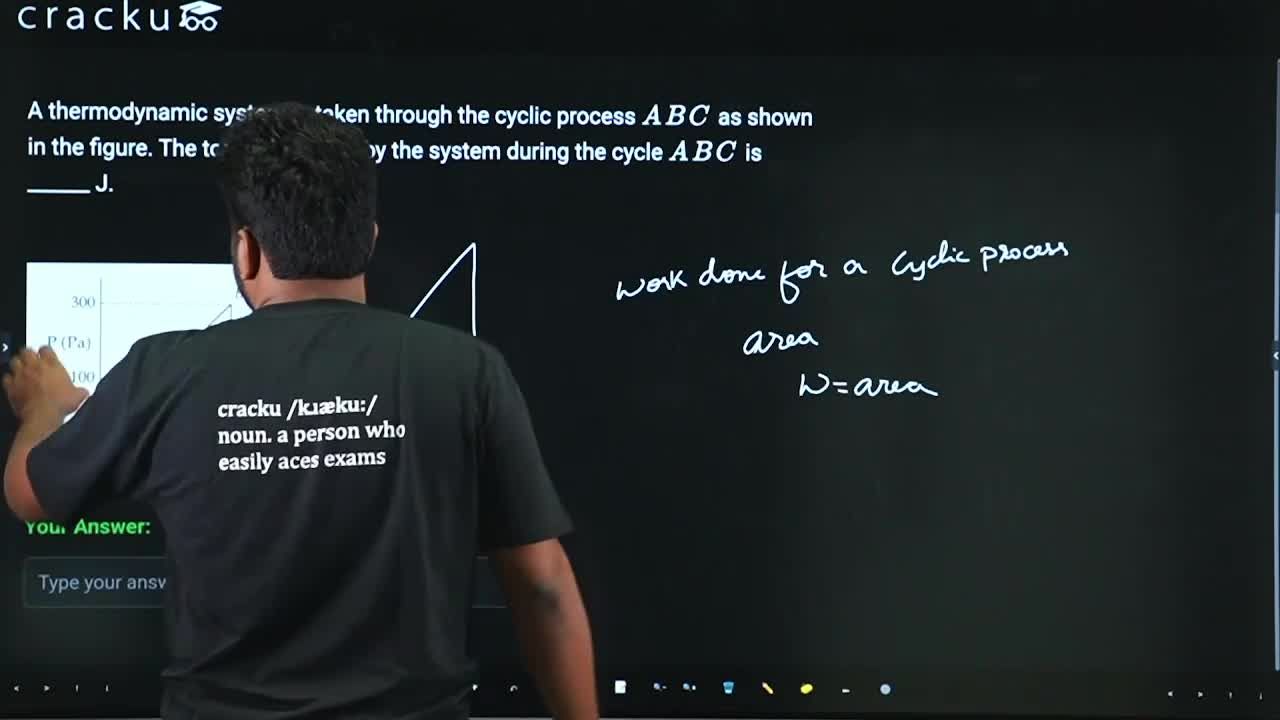 cracku
A thermodynamic taken through the cyclic process ABC as shown
in the figure. The by the system during the cycle ABC is
_____ J.
300
P (Pa)
100
Work done for a cyclic process
area
W=area
cracku /kɹæku:/
noun. a person who
easily aces exams
Your Answer:
Type your